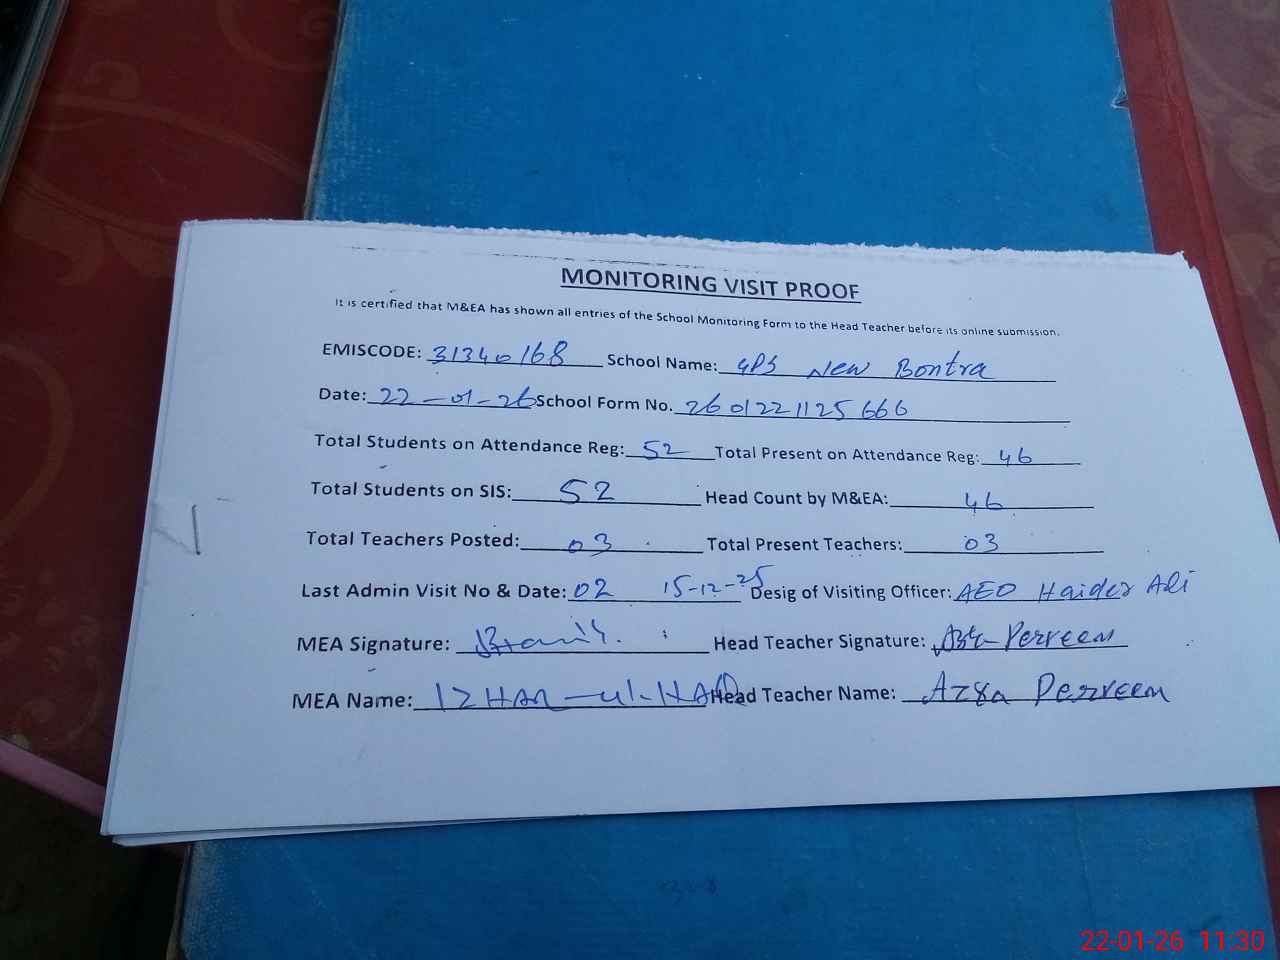 MONITORING VISIT PROOF
It is certified that M&EA has shown all entries of the School Monitoring Form to the Head Teacher before its online submission.
EMISCODE: 31340168 School Name: GPS New Bontra
Date: 22-01-26 School Form No. 2601221125666
Total Students on Attendance Reg: 52 Total Present on Attendance Reg: 46
Total Students on SIS: 52 Head Count by M&EA: 46
Total Teachers Posted: 03 Total Present Teachers: 03
Last Admin Visit No & Date: 02 15-12-25 Desig of Visiting Officer: AEO Haider Ali
MEA Signature: Head Teacher Signature: Perveen
MEA Name: IZHAR-ul-HAQ Head Teacher Name: Azra Perveen
22-01-26 11:30